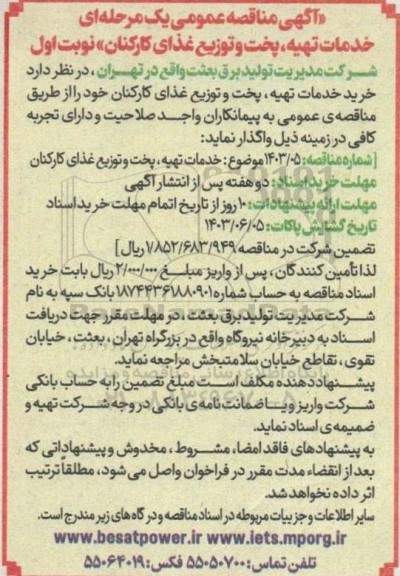 «آگهی مناقصه عمومی یک مرحله‌ای
خدمات تهیه، پخت و توزیع غذای کارکنان» نوبت اول
شرکت مدیریت تولید برق بعثت واقع در تهران، در نظر دارد
خرید خدمات تهیه، پخت و توزیع غذای کارکنان خود را از طریق
مناقصه‌ی عمومی به پیمانکاران واجد صلاحیت و دارای تجربه
کافی در زمینه ذیل واگذار نماید:
[شماره مناقصه: ۱۴۰۳/۰۵ موضوع: خدمات تهیه، پخت و توزیع غذای کارکنان
مهلت خرید اسناد: دو هفته پس از انتشار آگهی
مهلت ارائه پیشنهادات: ۱۰ روز از تاریخ اتمام مهلت خرید اسناد
تاریخ گشایش پاکات: ۱۴۰۳/۰۶/۰۵
تضمین شرکت در مناقصه ۷۸۵۲/۶۸۳/۹۴۹ ریال]
لذا تأمین کنندگان، پس از واریز مبلغ ۲/۰۰۰/۰۰۰ ریال بابت خرید
اسناد مناقصه به حساب شماره ۱۸۷۴۴۳۶۱۸۸۰۹۰۱ بانک سپه به نام
شرکت مدیریت تولید برق بعثت، در مهلت مقرر جهت دریافت
اسناد به دبیرخانه نیروگاه واقع در بزرگراه تهران، بعثت، خیابان
تقوی، تقاطع خیابان سلامتبخش مراجعه نماید.
پیشنهاد دهنده مکلف است مبلغ تضمین را به حساب بانکی
شرکت واریز و یا ضمانت نامه‌ی بانکی در وجه شرکت تهیه و
ضمیمه‌ی اسناد نماید.
به پیشنهادهای فاقد امضا، مشروط، مخدوش و پیشنهاداتی که
بعد از انقضاء مدت مقرر در فراخوان واصل می‌شود، مطلقاً ترتیب
اثر داده نخواهد شد.
سایر اطلاعات و جزییات مربوطه در اسناد مناقصه و درگاه‌های زیر مندرج است.
www.besatpower.ir www.iets.mporg.ir
تلفن تماس: ۵۵۰۵۰۷۰۰ فکس: ۵۵۰۶۴۰۱۹